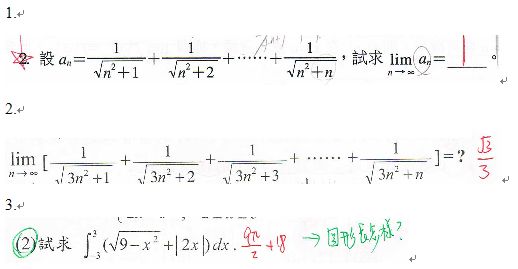 1.
2. 設 aₙ = 1/√(n²+1) + 1/√(n²+2) + ⋯⋯ + 1/√(n²+n)，試求 lim_{n→∞} aₙ = 1 。
2.
lim_{n→∞} [ 1/√(3n²+1) + 1/√(3n²+2) + 1/√(3n²+3) + ⋯⋯ + 1/√(3n²+n) ] = ? √3/3
3.
(2) 試求 ∫_{-3}^{3} (√(9−x²) + |2x|) dx . 9π/2 + 18 → 圖形長怎樣?